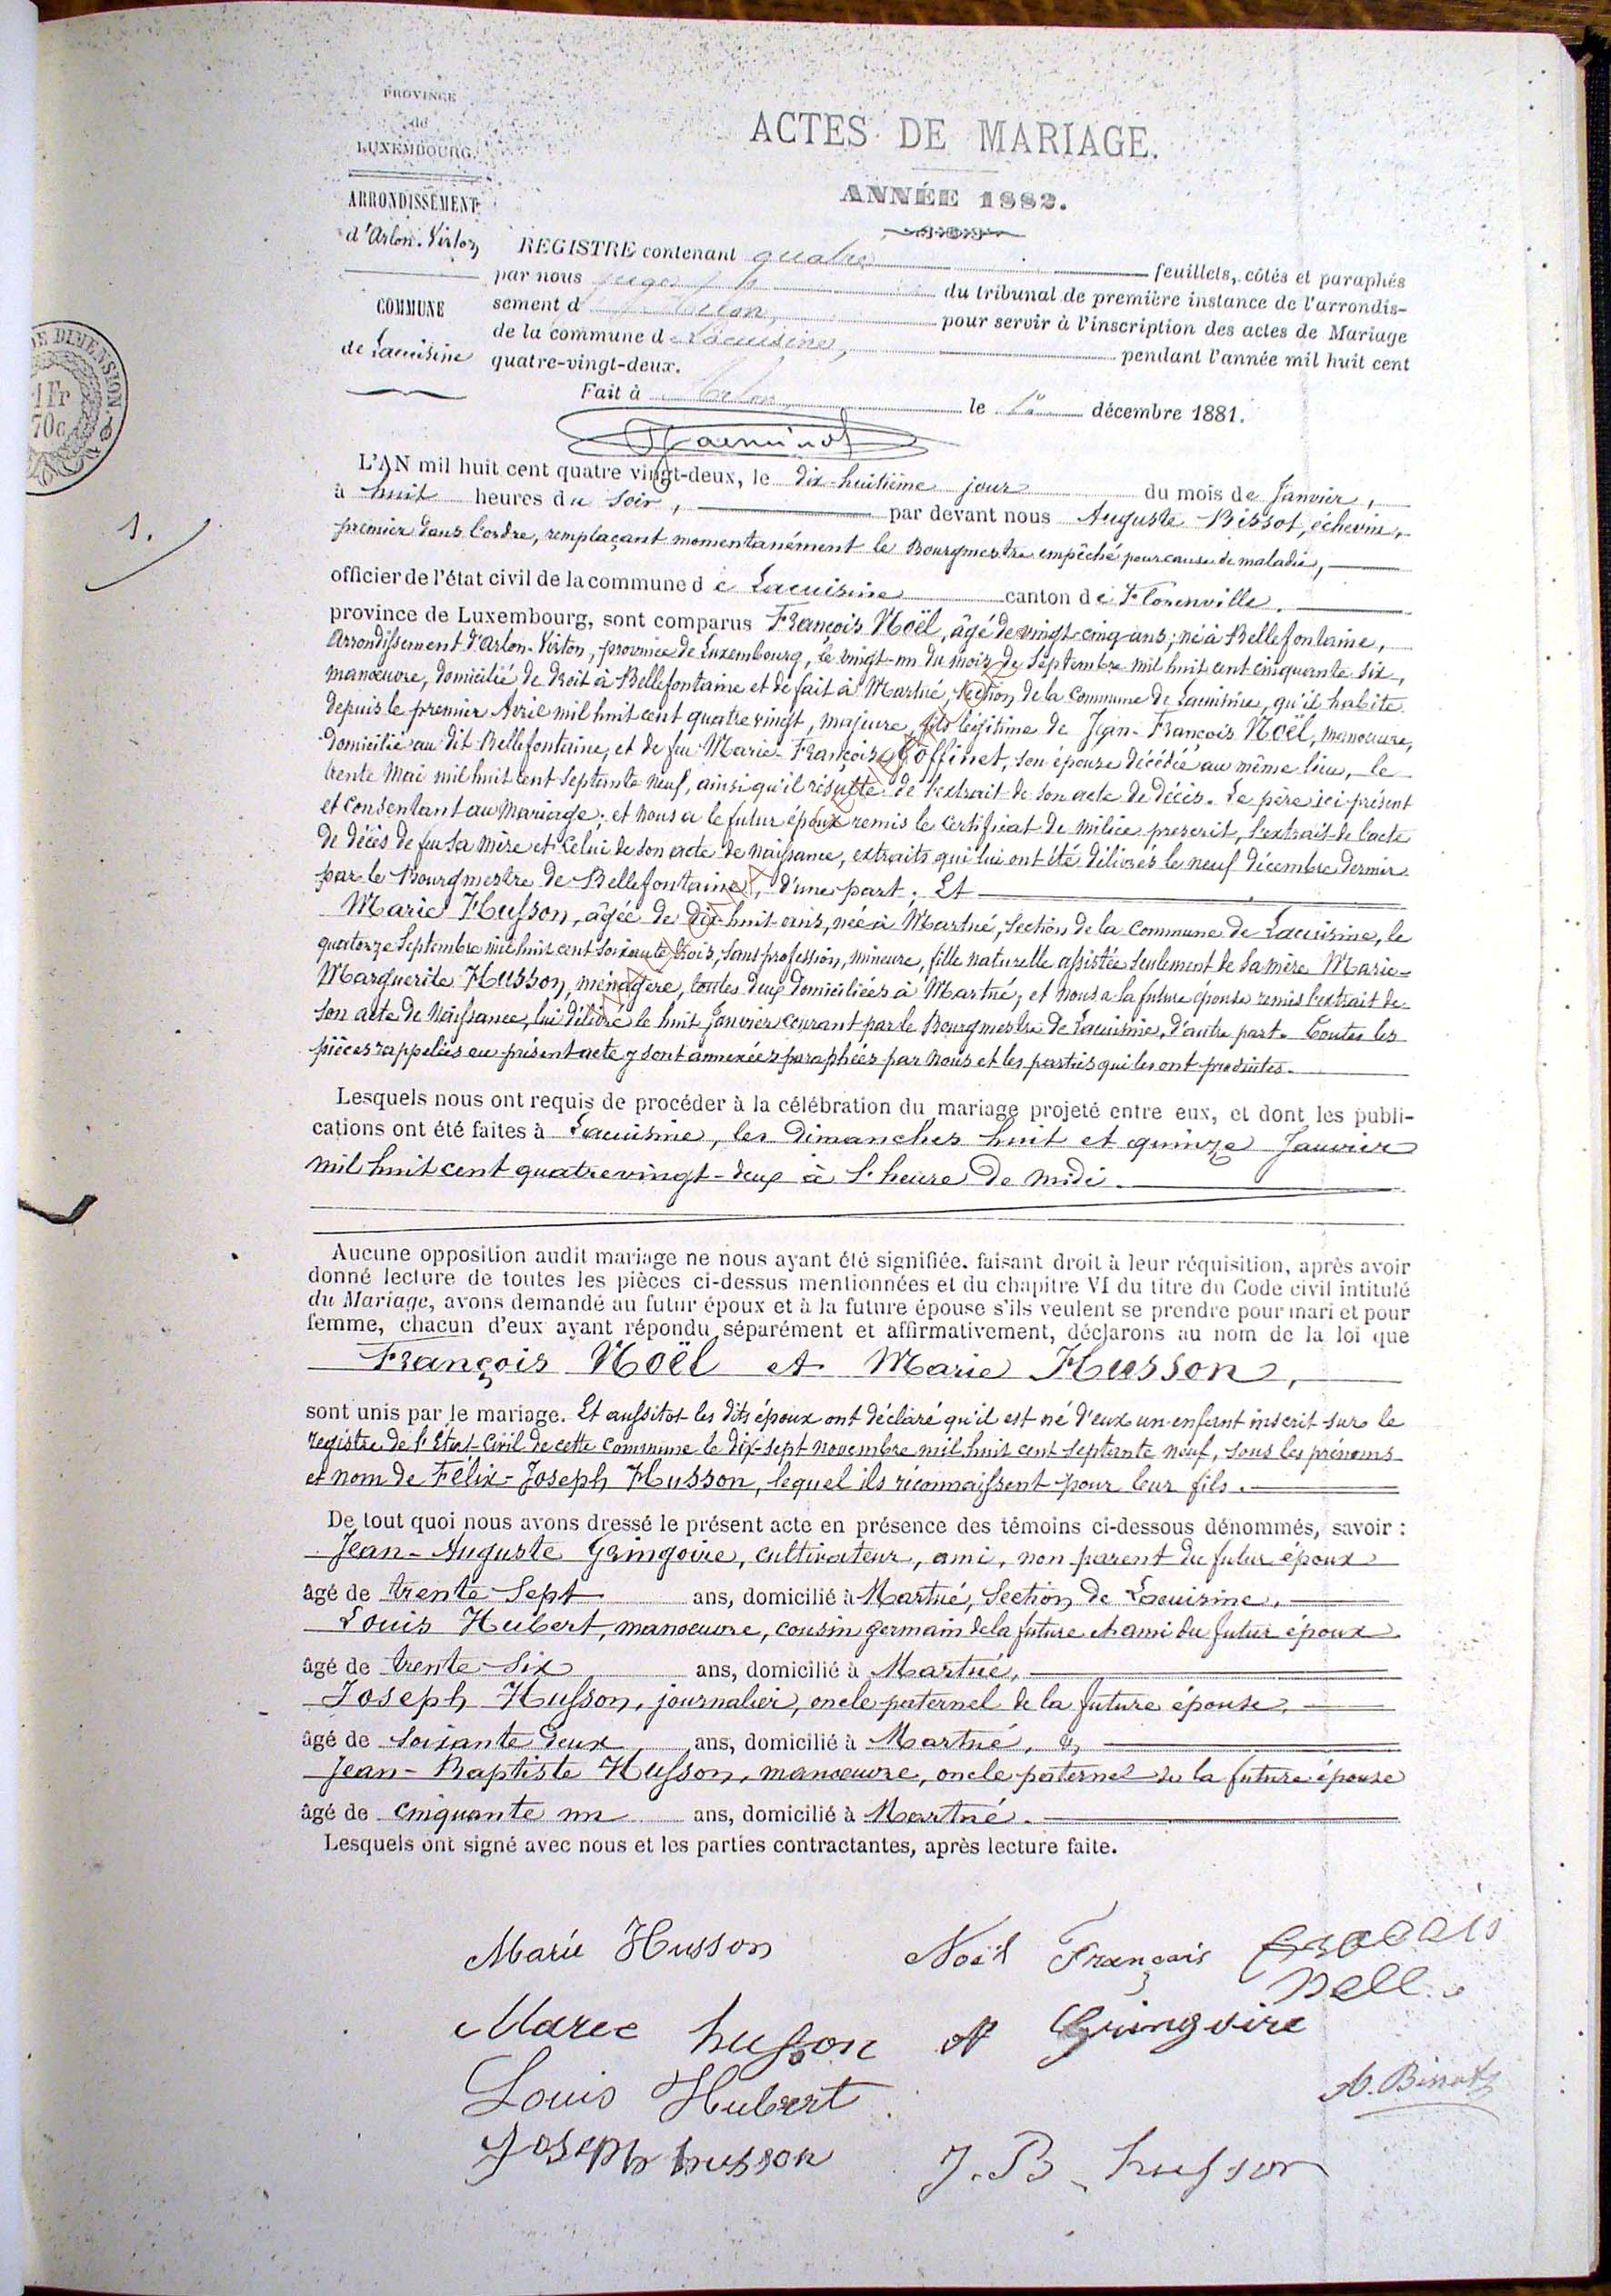 PROVINCE
de
LUXEMBOURG.
ARRONDISSEMENT
d'Arlon-Virton
COMMUNE
de Lacuisine
DE DIMENSION.
1 Fr
70c
1.
ACTES DE MARIAGE.
ANNÉE 1882.
REGISTRE contenant quatre feuillets, côtés et paraphés
par nous juge du tribunal de première instance de l'arrondis-
sement d'Arlon, pour servir à l'inscription des actes de Mariage
de la commune de Lacuisine, pendant l'année mil huit cent
quatre-vingt-deux.
Fait à Arlon le 1er décembre 1881.
L'AN mil huit cent quatre vingt-deux, le dix-huitième jour du mois de Janvier,
à huit heures du soir, par devant nous Auguste Bissot, échevin,
premier dans l'ordre, remplaçant momentanément le Bourgmestre empêché pour cause de maladie,
officier de l'état civil de la commune de Lacuisine canton de Florenville.
province de Luxembourg, sont comparus François Noël, âgé de vingt-cinq ans; né à Bellefontaine,
Arrondissement d'Arlon-Virton, province de Luxembourg, le vingt-un du mois de Septembre mil huit cent cinquante six,
manœuvre, domicilié de droit à Bellefontaine et de fait à Martué, section de la Commune de Lacuisine, qu'il habite
depuis le premier Avril mil huit cent quatre vingt, majeure, fils légitime de Jean-François Noël, manœuvre,
domicilié au dit Bellefontaine, et de feu Marie-François Goffinet, son épouse décédée au même lieu, le
trente Mai mil huit cent septante neuf, ainsi qu'il résulte de l'extrait de son acte de décès. Le père ici présent
et consentant au Mariage; et nous a le futur époux remis le certificat de milice prescrit, l'extrait de l'acte
de décès de feu sa mère et celui de son acte de naissance, extraits qui lui ont été délivrés le neuf décembre dernier
par le Bourgmestre de Bellefontaine, d'une part; Et
Marie Husson, âgée de dix-huit ans, née à Martué, Section de la Commune de Lacuisine, le
quatorze Septembre mil huit cent soixante trois, sans profession, mineure, fille naturelle assistée seulement de sa mère Marie-
Marguerite Husson, ménagère, toutes deux domiciliées à Martué; et nous a la future épouse remis l'extrait de
son acte de Naissance, lui délivré le huit Janvier courant par le Bourgmestre de Lacuisine, d'autre part. Toutes les
pièces rappelées au présent acte y sont annexées paraphées par nous et les parties qui les ont produites.
Lesquels nous ont requis de procéder à la célébration du mariage projeté entre eux, et dont les publi-
cations ont été faites à Lacuisine, les dimanches huit et quinze Janvier
mil huit cent quatrevingt-deux à l'heure de midi.
Aucune opposition audit mariage ne nous ayant été signifiée. faisant droit à leur réquisition, après avoir
donné lecture de toutes les pièces ci-dessus mentionnées et du chapitre VI du titre du Code civil intitulé
du Mariage, avons demandé au futur époux et à la future épouse s'ils veulent se prendre pour mari et pour
femme, chacun d'eux ayant répondu séparément et affirmativement, déclarons au nom de la loi que
François Noël et Marie Husson,
sont unis par le mariage. Et aussitot les dits époux ont déclaré qu'il est né d'eux un enfant inscrit sur le
registre de l'Etat-Civil de cette commune le dix-sept novembre mil huit cent septante neuf, sous les prénoms
et nom de Félix-Joseph Husson, lequel ils reconnaissent pour leur fils.
De tout quoi nous avons dressé le présent acte en présence des témoins ci-dessous dénommés, savoir :
Jean-Auguste Gringoire, cultivateur, ami, non parent du futur époux
âgé de trente sept ans, domicilié à Martué, Section de Lacuisine.
Louis Hubert, manoeuvre, cousin germain de la future et ami du futur époux
âgé de trente-six ans, domicilié à Martué,
Joseph Husson, journalier, oncle paternel de la future épouse,
âgé de soixante deux ans, domicilié à Martué, &,
Jean-Baptiste Husson, manoeuvre, oncle paternel de la future épouse
âgé de cinquante un ans, domicilié à Martué.
Lesquels ont signé avec nous et les parties contractantes, après lecture faite.
Marie Husson Noël François
Marie husson A Gringoire
Louis Hubert A. Bissot
Joseph husson J. B. husson